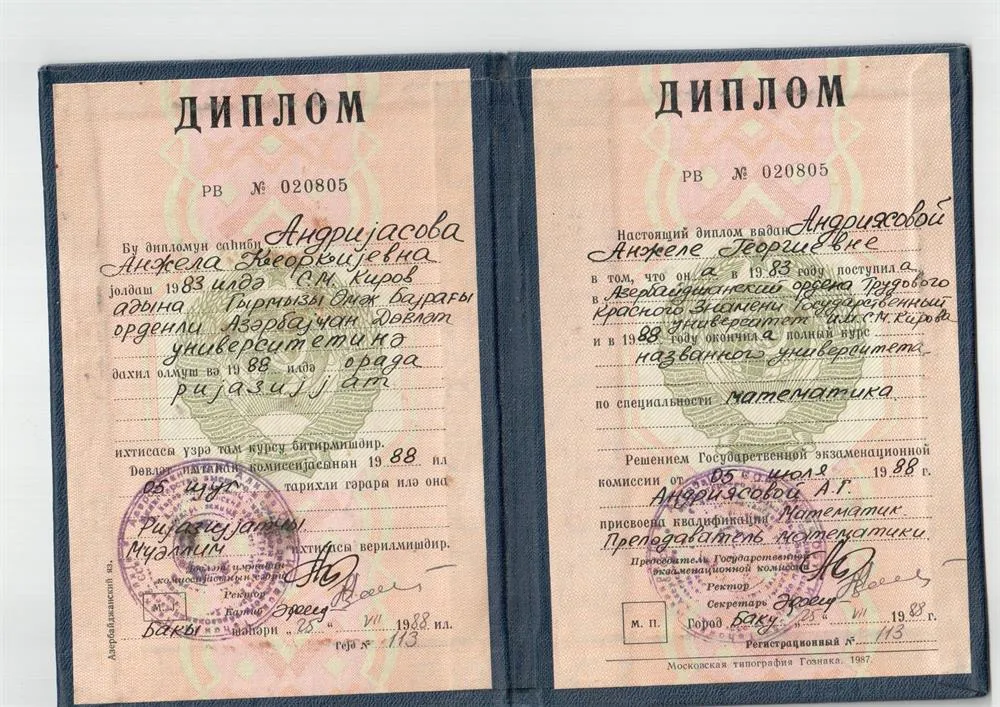 ДИПЛОМ
РВ № 020805
Бу дипломун саһиби Андријасова
Анжела Ҝеорҝијевна
јолдаш 1983 илдә С.М. Киров
адына Гырмызы Әмәк Бајрағы
орденли Азәрбајҹан Дөвләт
университетинә
дахил олмуш вә 1988 илдә орада
ријазијјат
ихтисасы үзрә там курсу битирмишдир.
Дөвләт имтаһан комиссијасынын 1988 ил
05 ијул тарихли гәрары илә она
Ријазијјатчы
Мүәллим ихтисасы верилмишдир.
Дөвләт имтаһан
комиссијасынын сәдри
Ректор
Катиб
М. Ј.
Бакы шәһәри „25“ VII 1988 ил.
Гејд № 113
Азербайджанский яз.
ДИПЛОМ
РВ № 020805
Настоящий диплом выдан Андриясовой
Анжеле Георгиевне
в том, что она в 1983 году поступила
в Азербайджанский ордена Трудового
Красного Знамени Государственный
университет им.С.М.Кирова
и в 1988 году окончила полный курс
названного университета
по специальности математика
Решением Государственной экзаменационной
комиссии от „05“ июля 1988 г.
Андриясовой А.Г.
присвоена квалификация Математик.
Преподаватель математики.
Председатель Государственной
экзаменационной комиссии
Ректор
Секретарь
М. П.
Город Баку „25“ VII 1988 г.
Регистрационный № 113
Московская типография Гознака. 1987.